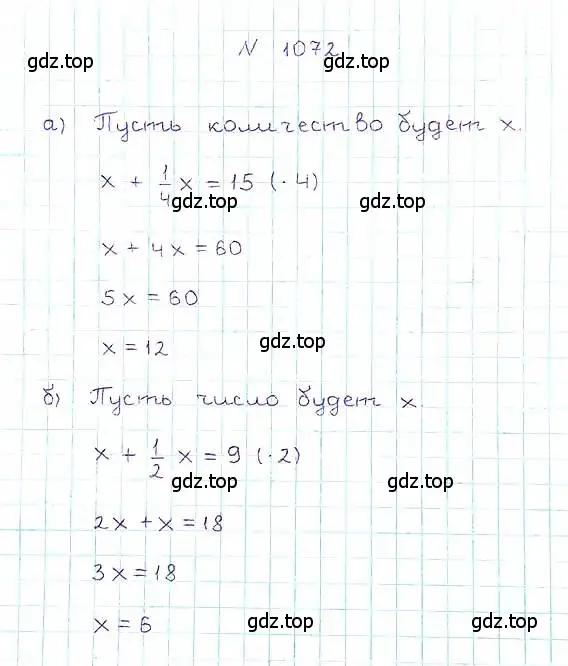 N 1072
gdz.top gdz.top
а) Пусть количество будет x.
x + 1/4 x = 15 (· 4)
gdz.top gdz.top
x + 4x = 60
5x = 60
x = 12
gdz.top
б) Пусть число будет x.
x + 1/2 x = 9 (· 2)
gdz.top gdz.top
2x + x = 18
3x = 18
x = 6
gdz.top gdz.top